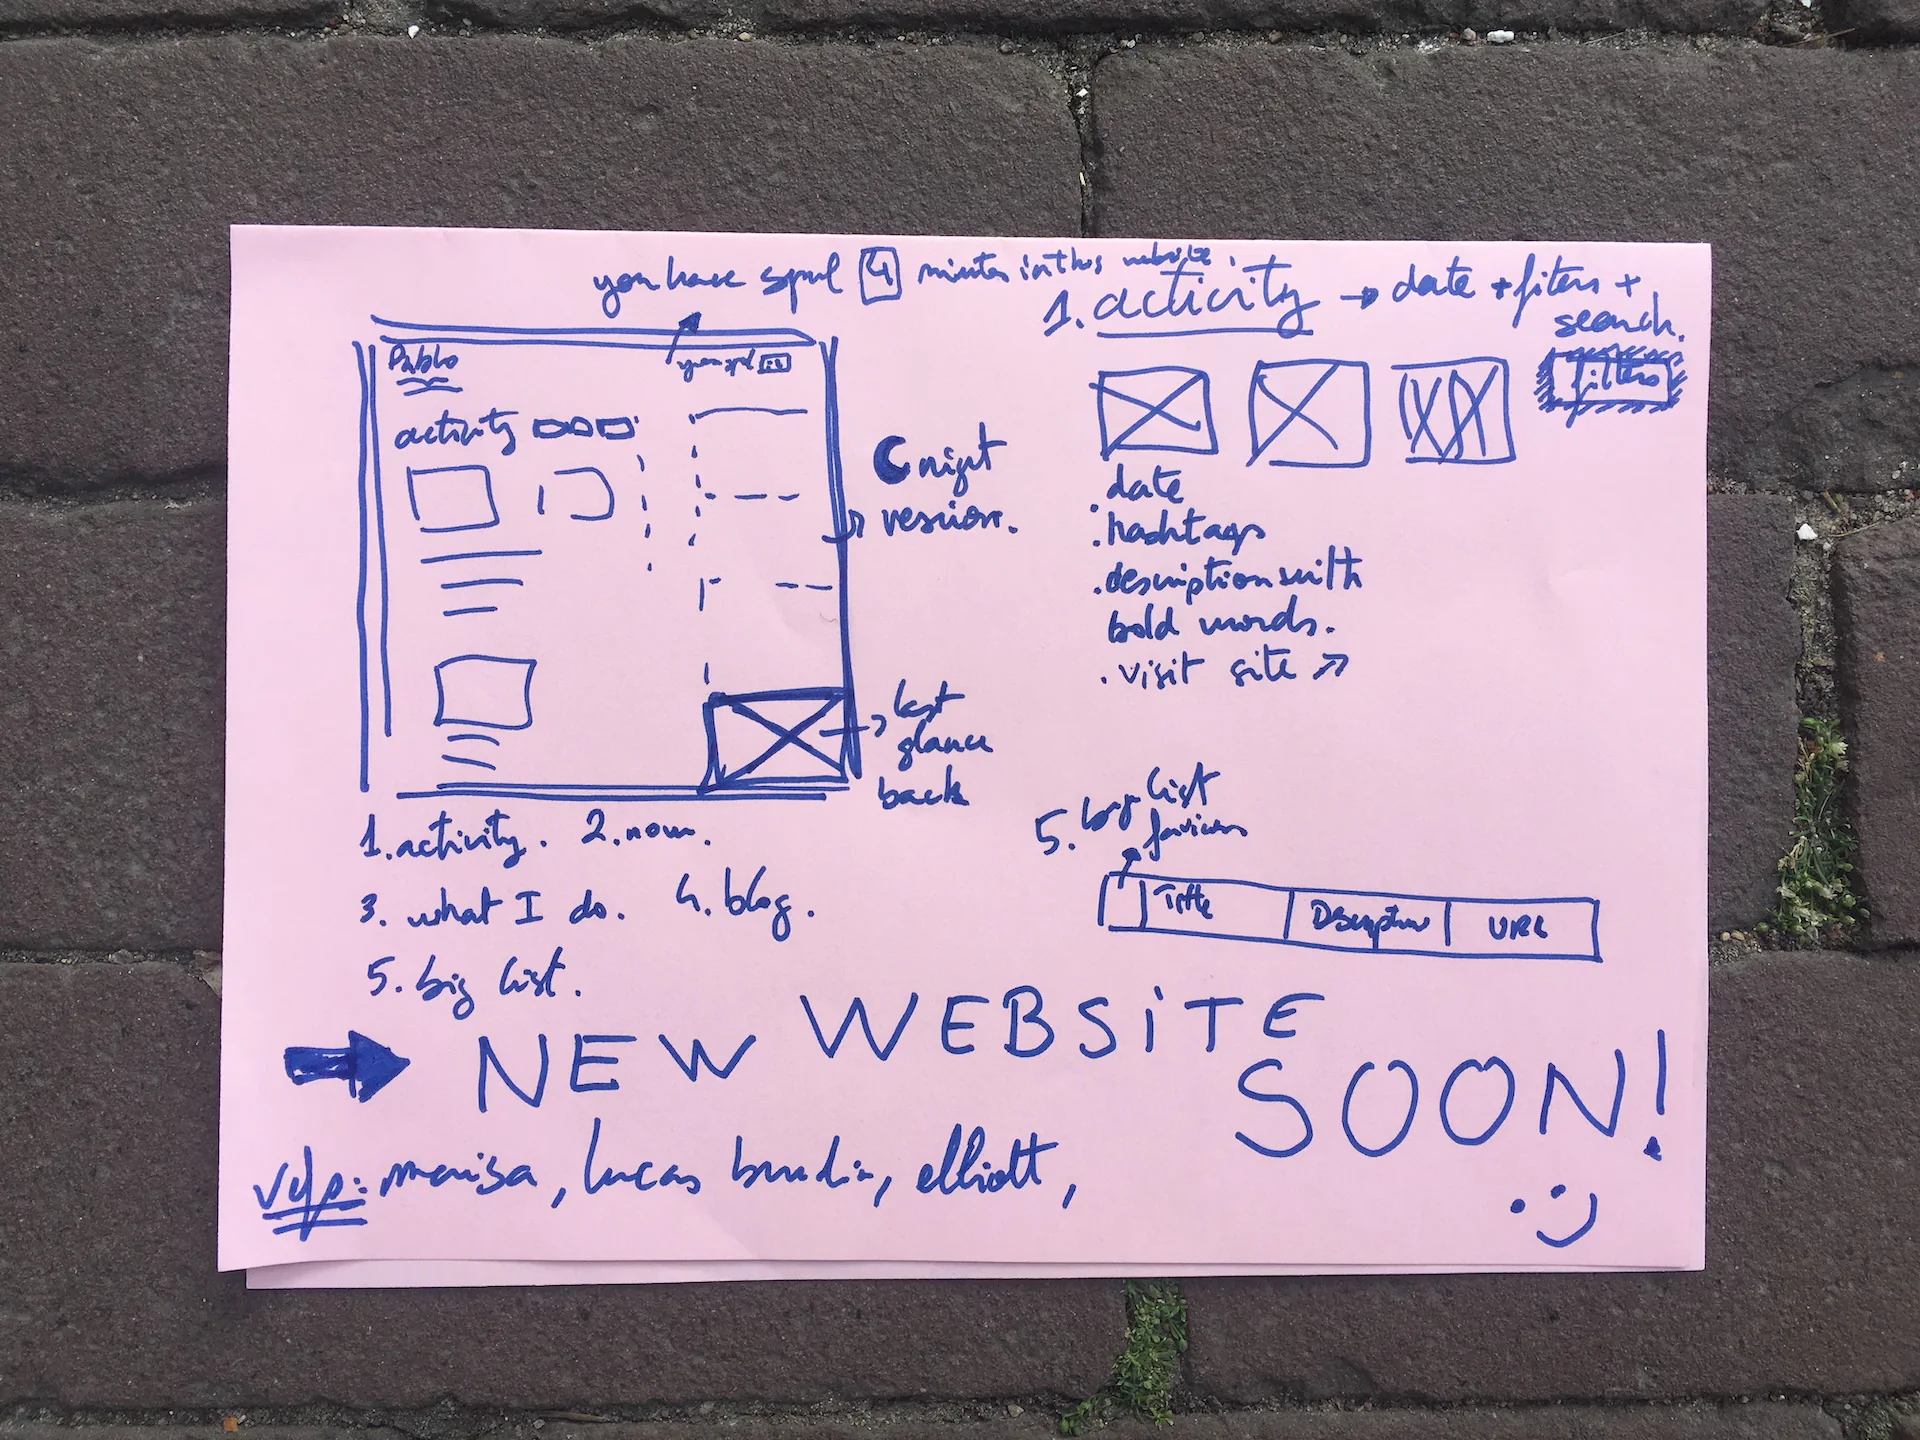 you have spent 4 minutes in this website.
1. activity → date + filters +
search.
filters
Pablo
activity
night
version.
date
. hashtags
. description with
bold words.
. visit site ↗
last
glance
back
1. activity. 2. now.
3. what I do. 4. blog.
5. big list.
5. big list
favicon
Title
Description
URL
→ NEW WEBSITE
SOON!
marisa, lucas, elliott,